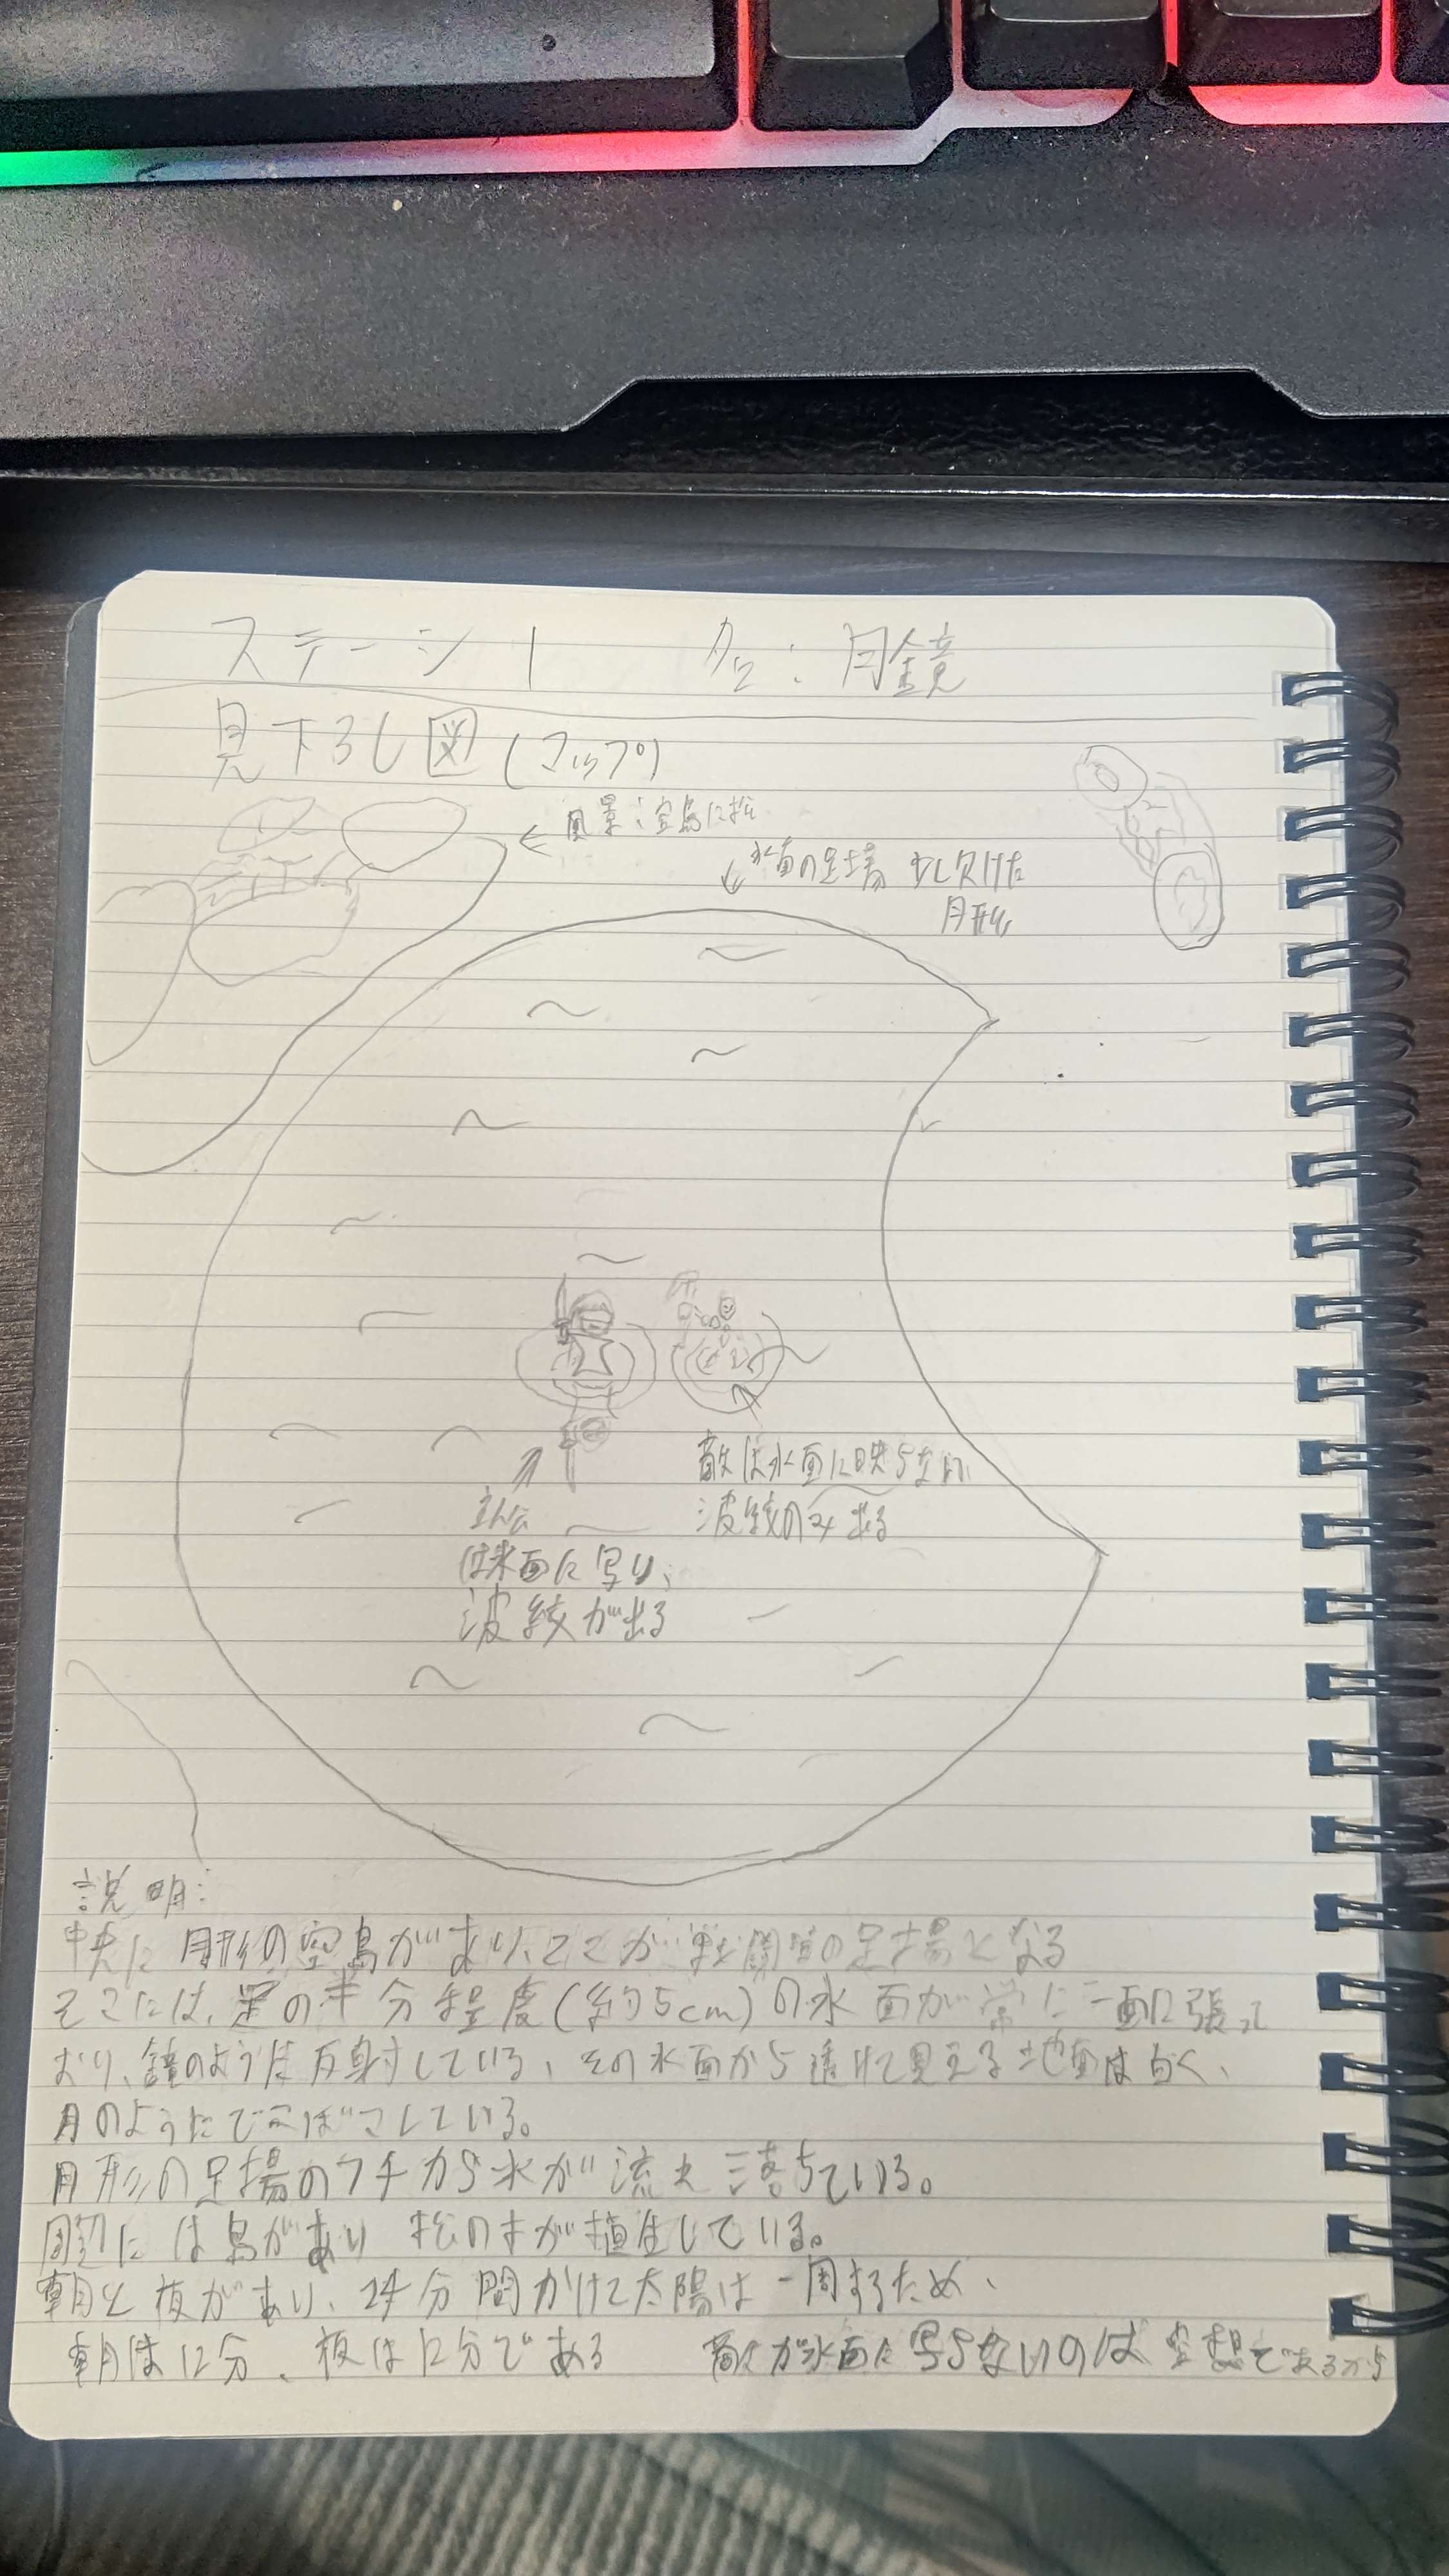 ステージ1 名:月鏡
見下ろし図(マップ)
←風景:空島に松
水面の足場 少し欠けた
月形
敵は水面に映らない
波紋のみ出る
主人公
は水面に写り、
波紋が出る
説明:
中央に月形の空島があり、ここが戦闘時の足場となる
そこには、足の半分程度(約5cm)の水面が常に一面に張って
おり、鏡のように反射している、その水面から透けて見える地面は白く、
月のようにでこぼこしている。
月形の足場のフチから水が流れ落ちている。
周辺には島があり 松の木が植生している。
朝と夜があり、24分間かけて太陽は一周するため、
朝は12分、夜は12分である 敵が水面に写らないのは空想であるから